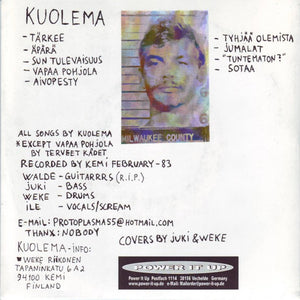 KUOLEMA
- TÄRKEE
- ÄPÄRÄ
- SUN TULEVAISUUS
- VAPAA POHJOLA
- AIVOPESTY
- TYHJÄÄ OLEMISTA
- JUMALAT
- "TUNTEMATON?"
- SOTAA
MILWAUKEE COUNTY
ALL SONGS BY KUOLEMA
*EXCEPT VAPAA POHJOLA
BY TERVEET KÄDET
RECORDED BY KEMI FEBRUARY -83
WALDE - GUITARRRS (R.I.P.)
JUKI - BASS
WEKE - DRUMS
ILE - VOCALS/SCREAM
E-MAIL: PROTOPLASMA55@HOTMAIL.COM
THANX: NOBODY
COVERS BY JUKI & WEKE
KUOLEMA-INFO:
WEKE RÄKÖNEN
TAPANINKATU 6 A 2
94100 KEMI
FINLAND
POWER IT UP
Power It Up Postfach 1114 38156 Vechelde Germany
www.power-it-up.de e-Mail: Mailorder@power-it-up.de